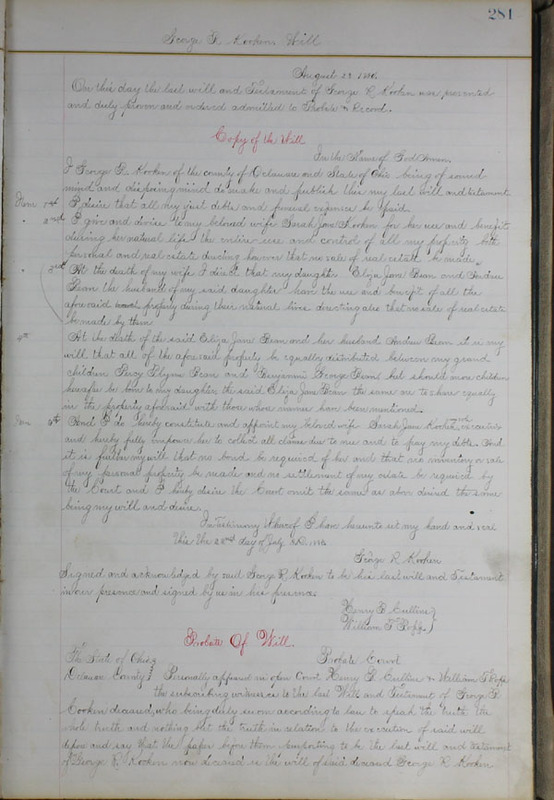 281
George R. Kooken Will
August 29. 1886.
On this day the last will and Testament of George R Kooken was presented
and duly proven and ordered admitted to Probate & Record.
Copy of the Will
In the Name of God Amen.
I George R. Kooken of the county of Delaware and State of Ohio being of sound
mind and disposing mind do make and publish this my last will and testament
Item 1st I desire that all my just debts and funeral expenses be paid.
2nd I give and devise to my beloved wife Sarah Jane Kooken for her use and benefit
during her natural life the entire use and control of all my property both
personal and real estate directing however that no sale of real estate be made
3rd At the death of my wife I direct that my daughter Eliza Jane Bean and Andrew
Bean the husband of my said daughter have the use and benefit of all the
aforesaid property during their natural lives directing also that no sale of real estate
be made by them
4th At the death of the said Eliza Jane Bean and her husband Andrew Bean it is my
will that all of the aforesaid property be equally distributed between my grand
children Percy Bean and Benjamin George Bean but should more children
hereafter be born to my daughter the said Eliza Jane Bean the same are to share equally
in the property aforesaid with those whose names have been mentioned
Item 5th And I do hereby constitute and appoint my beloved wife Sarah Jane Kooken executrix
and hereby fully empower her to collect all claims due to me and to pay my debts. And
it is further my will that no bond be required of her and that no inventory or sale
of my personal property be made and no settlement of my estate be required by
the Court and I hereby desire the Court omit the same as above desired the same
being my will and desire
In testimony Whereof I have hereunto set my hand and seal
this the 28nd day of July A.D. 1886
George R Kooken
Signed and acknowledged by said George R. Kooken to be his last will and Testament
in our presence and signed by us in his presence.
Henry B
William T
Probate Of Will.
The State of Ohio
Delaware County Probate Court
Personally appeared in open Court Henry & William T
the subscribing witnesses to the last Will and Testament of George R.
Kooken deceased, who being duly sworn according to law to speak the truth the
whole truth and nothing but the truth in relation to the execution of said will
depose and say that the paper before them purporting to be the last will and testament
of George R. Kooken now deceased is the will of said deceased George R Kooken